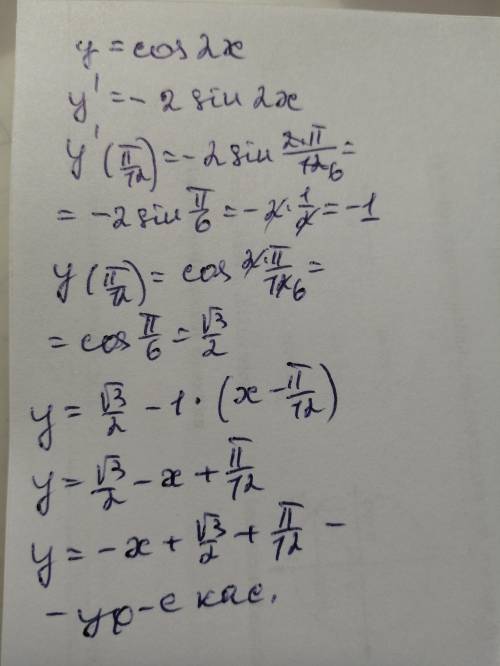 y = cos 2x
y' = - 2 sin 2x
y'(π/12) = - 2 sin 2·π/12 6 =
= -2 sin π/6 = - 2 · 1/2 = -1
y(π/12) = cos 2·π/12 6 =
= cos π/6 = √3/2
y = √3/2 - 1 · (x - π/12)
y = √3/2 - x + π/12
y = -x + √3/2 + π/12 -
- ур-е кас.